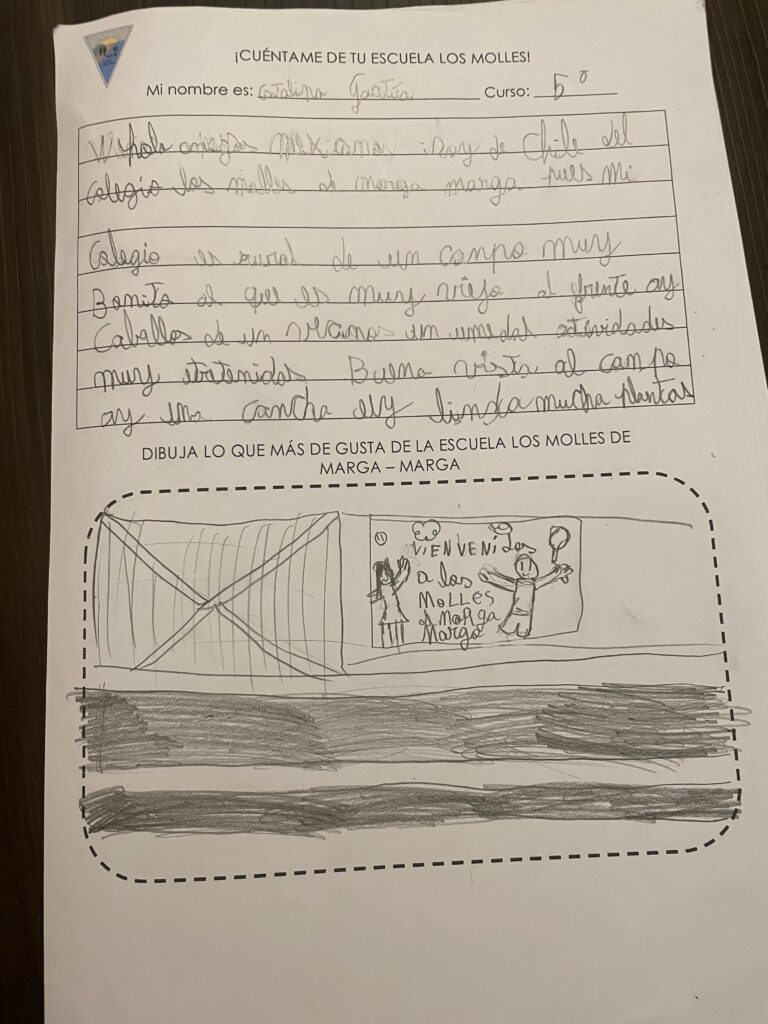 ¡CUÉNTAME DE TU ESCUELA LOS MOLLES!
Mi nombre es: Catalina Curso: 5º
hola amigos Mexicanos soy de Chile del
colegio los molles de marga marga pues Mi
Colegio es rural de un campo muy
Bonito al que es muy viejo al frente ay
Caballos de un vecano actividades
muy etratenidas Buena vista al campo
ay una cancha linda mucha plantas
DIBUJA LO QUE MÁS DE GUSTA DE LA ESCUELA LOS MOLLES DE
MARGA – MARGA
VIENVENIDOS
a los
MOLLES
d MARGA
Marga